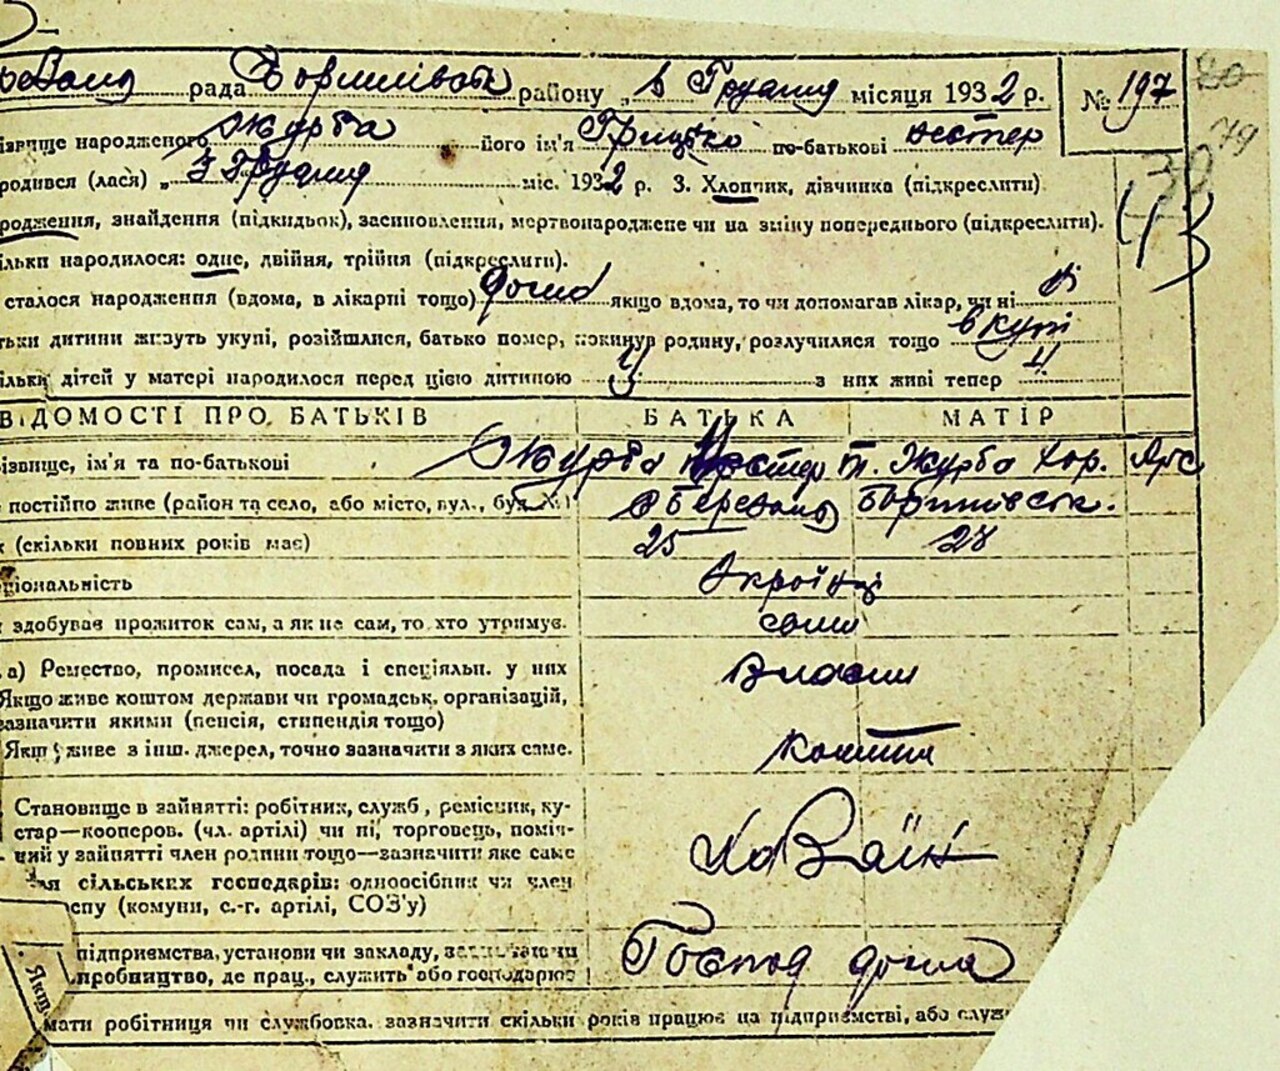 рада Боришпівськ району „ 6 Грудня місяця 1932 р. № 197
ізвище народженого Журба його ім'я Грицько по-батькові Нестер
родився (лася) „ 3 Грудня міс. 1932 р. 3. Хлопчик, дівчинка (підкреслити)
родження, знайдення (підкидьок), засиновлення, мертвонароджене чи на зміну попереднього (підкреслити).
ільки народилося: одне, двійня, трійня (підкреслити).
сталося народження (вдома, в лікарні тощо) дома якщо вдома, то чи допомагав лікар, чи ні ні
тьки дитини живуть укупі, розійшлися, батько помер, покинув родину, розлучилися тощо в купі
ільки дітей у матері народилося перед цією дитиною 4 з них живі тепер 4
ВІДОМОСТІ ПРО БАТЬКІВ БАТЬКА МАТІР
ізвище, ім'я та по-батькові Журба Нестер Т. Журба Хар. Ярс
постійно живе (район та село, або місто, вул., буд. №) с Березань
(скільки повних років має) 25 28
ціональність Українці
здобував прожиток сам, а як не сам, то хто утримує. сами
а) Ремество, промисел, посада і спеціяльн. у них Власни
Якщо живе коштом держави чи громадськ. організацій,
зазначити якими (пенсія, стипендія тощо)
Якщо живе з інш. джерел, точно зазначити з яких саме. кошти
Становище в зайнятті: робітник, служб, ремісник, ку-
стар—кооперов. (чл. артілі) чи ні, торговець, поміч-
ний у зайнятті член родини тощо—зазначити яке саме
ля сільських господарів: одноосібник чи член
спу (комуни, с.-г. артілі, СОЗ'у)
підприємства, установи чи закладу, зазначаючи
робництво, де прац., служить або господарює Господ дома
Якщ
мати робітниця чи службовка. зазначити скільки років працює на підприємстві, або служ